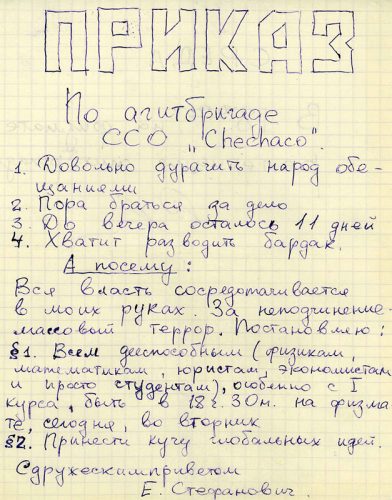 ПРИКАЗ
По агитбригаде
ССО „Chechaco".
1. Довольно дурачить народ обе-
щаниями
2. Пора браться за дело
3. До вечера осталось 11 дней
4. Хватит разводить бардак.
А посему:
Вся власть сосредотачивается
в моих руках. За неподчинение-
массовый террор. Постановляю:
§1. Всем дееспособным (физикам,
математикам, юристам, экономистам
и просто студентам), особенно с I
курса, быть в 18г. 30м. на физма
те, сегодня, во вторник
§2. Принести кучу глобальных идей.
Сдружескимприветом
Е. Стефанович.